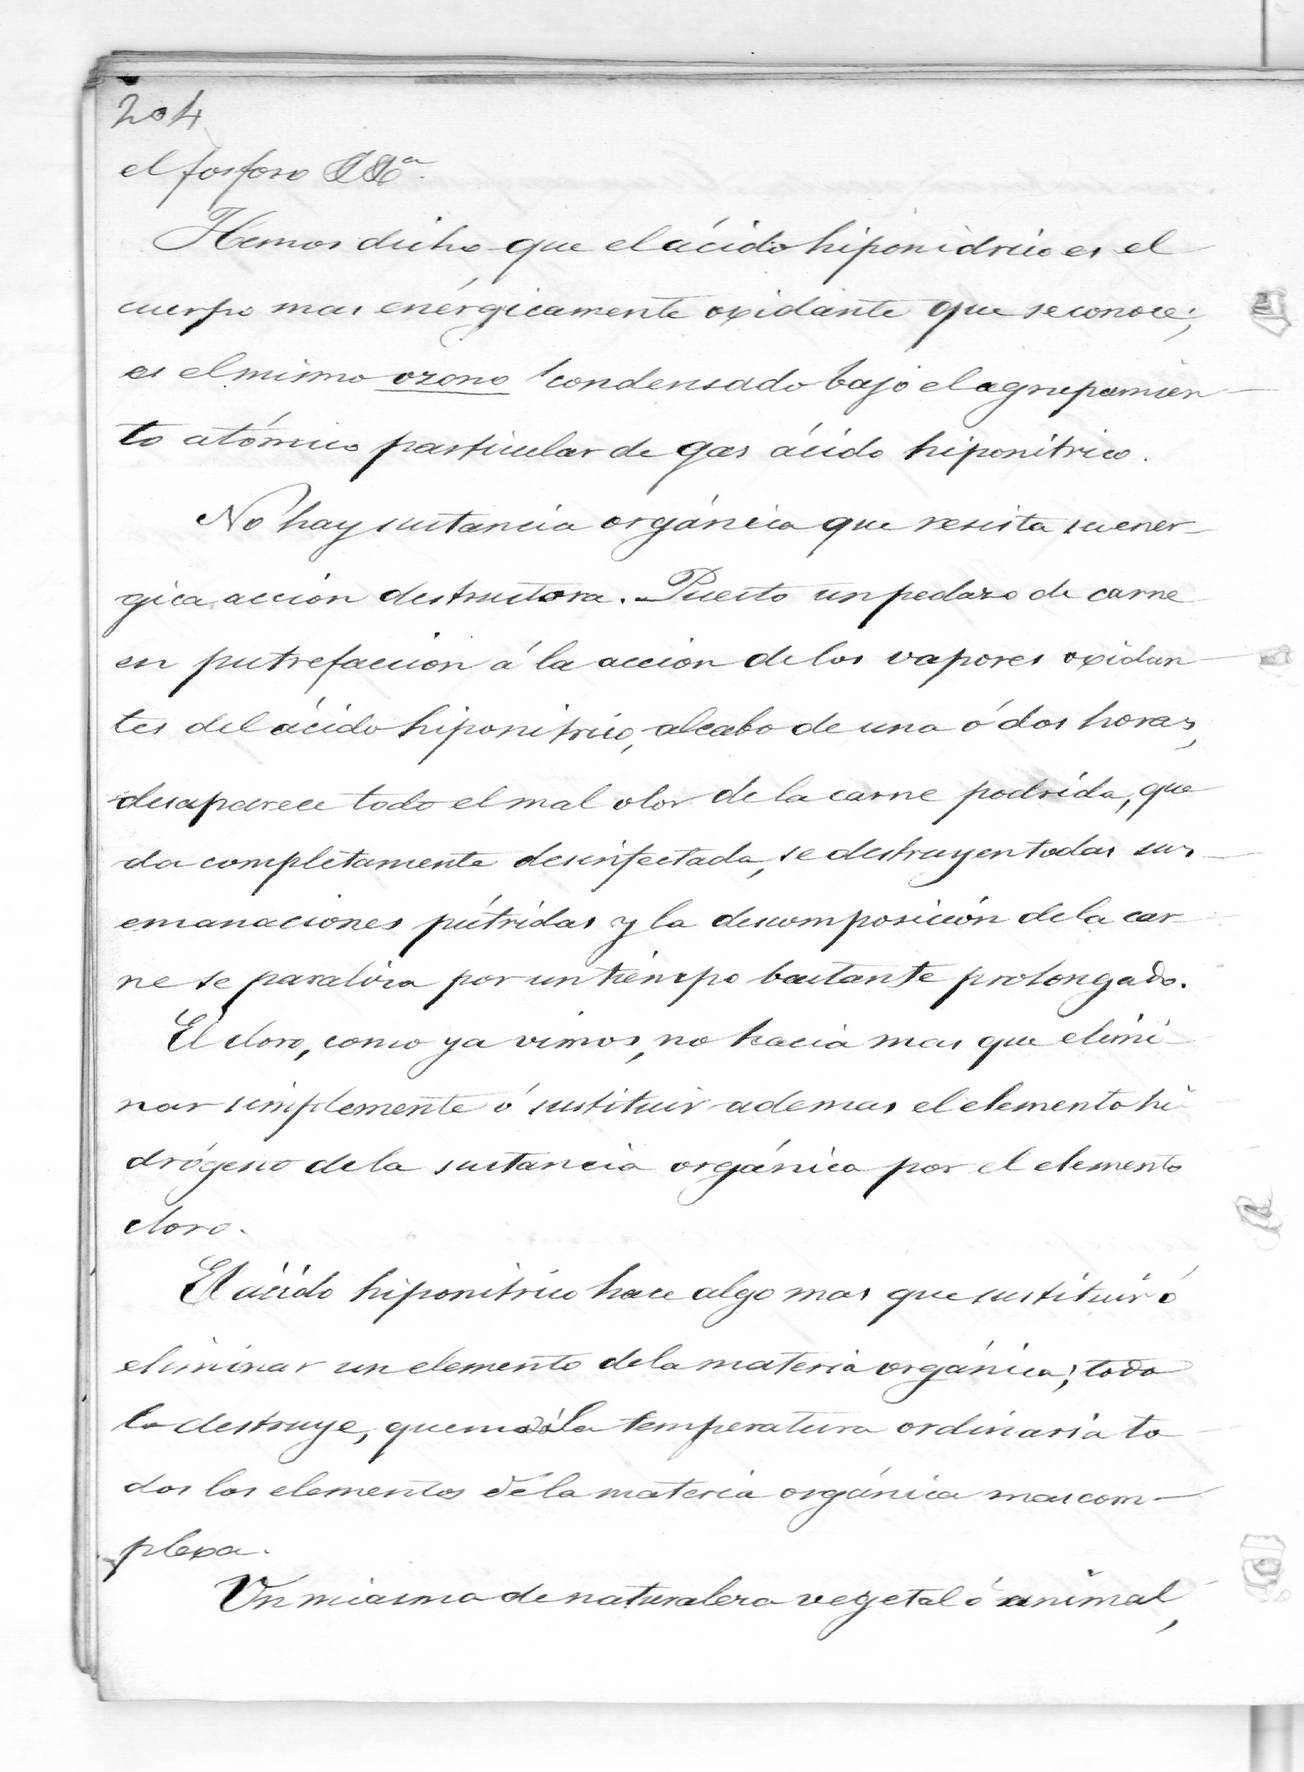 204
el fosforo &&ª.
Hemos dicho que el ácido hiponidrico es el
cuerpo mas enérgicamente oxidante que se conoce;
es el mismo ozono condensado bajo el agrupamien
to atómico particular de gas ácido hiponitrico.
No hay sustancia orgánica que resista su ener-
gica accion destructora. Puesto un pedazo de carne
en putrefaccion á la accion de los vapores oxidan
tes del ácido hiponitrico, al cabo de una ó dos horas,
desaparece todo el mal olor de la carne podrida, que
da completamente desinfectada, se destruyen todas sus
emanaciones pútridas y la descomposición de la car
ne se paraliza por un tiempo bastante prolongado.
El cloro, como ya vimos, no hacia mas que elimi-
nar simplemente ó sustituir ademas el elemento hi
drógeno de la sustancia orgánica por el elemento
cloro.
El ácido hiponitrico hace algo mas que sustituir ó
eliminar un elemento de la materia orgánica; todo
lo destruye, quema á la temperatura ordinaria to
dos los elementos de la materia orgánica mas com-
plexa.
Un miasma de naturaleza vegetal ó animal,